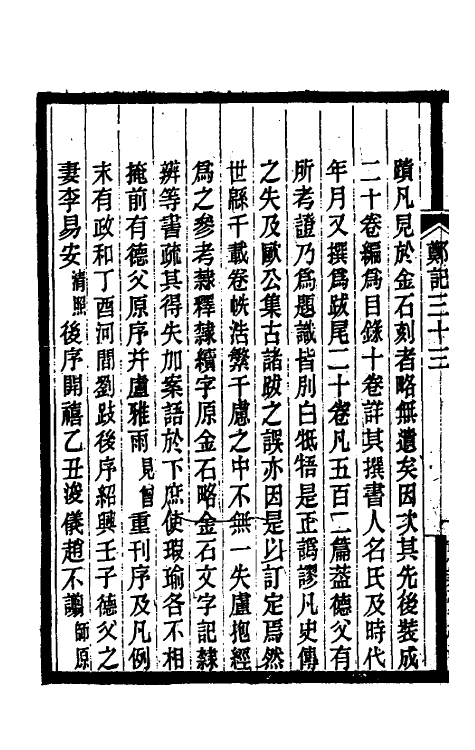 蹟凡見於金石刻者略無遺矣因次其先後裝成
二十卷編爲目錄十卷詳其撰書人名氏及時代
年月又撰爲跋尾二十卷凡五百二篇葢德父有
所考證乃爲題識皆別白牴牾是正譌謬凡史傳
之失及歐公集古諸跋之誤亦因是以訂定焉然
世緜千載卷帙浩繁千慮之中不無一失盧抱經
爲之參考隸釋隸續字原金石略金石文字記隸
辨等書疏其得失加案語於下庶使瑕瑜各不相
掩前有德父原序幷盧雅雨見曾重刊序及凡例
末有政和丁酉河間劉跂後序紹興壬子德父之
妻李易安清照後序開禧乙丑浚儀趙不譾師原
鄭記三十三